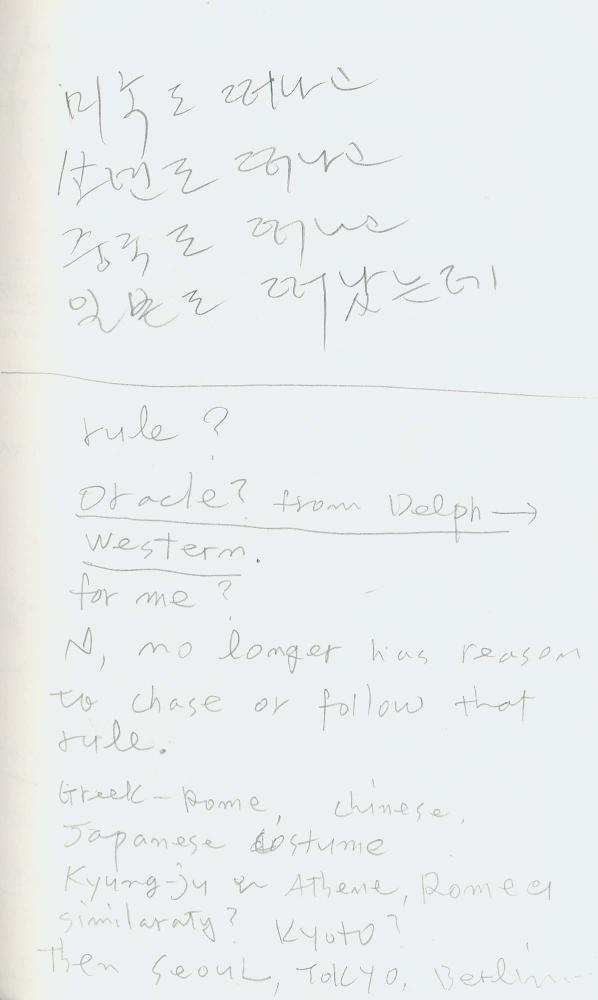 미국도 떠나고
도 떠나고
중국도 떠나고
일본도 떠났는데
rule ?
Oracle? from Delph →
Western.
for me ?
N, no longer has reason
to chase or follow that
rule.
Greek - Rome, chinese,
Japanese costume
Kyung-ju Athene, Rome
similaraty? Kyoto?
Then Seoul, TOKYO, Berlin...